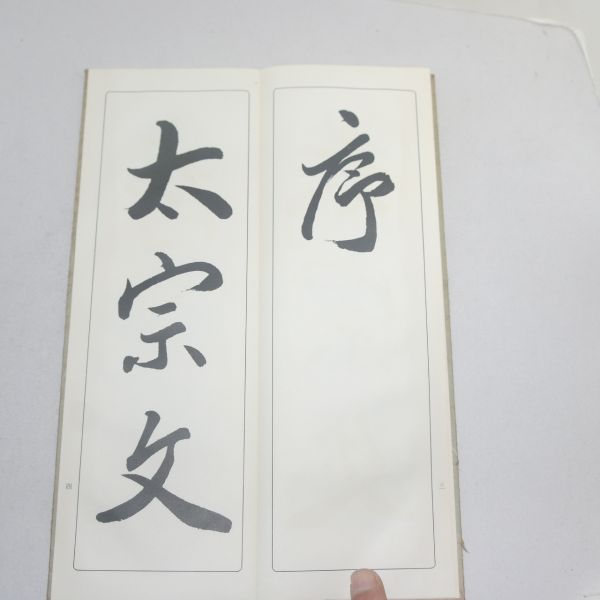 序
太宗文
三
四